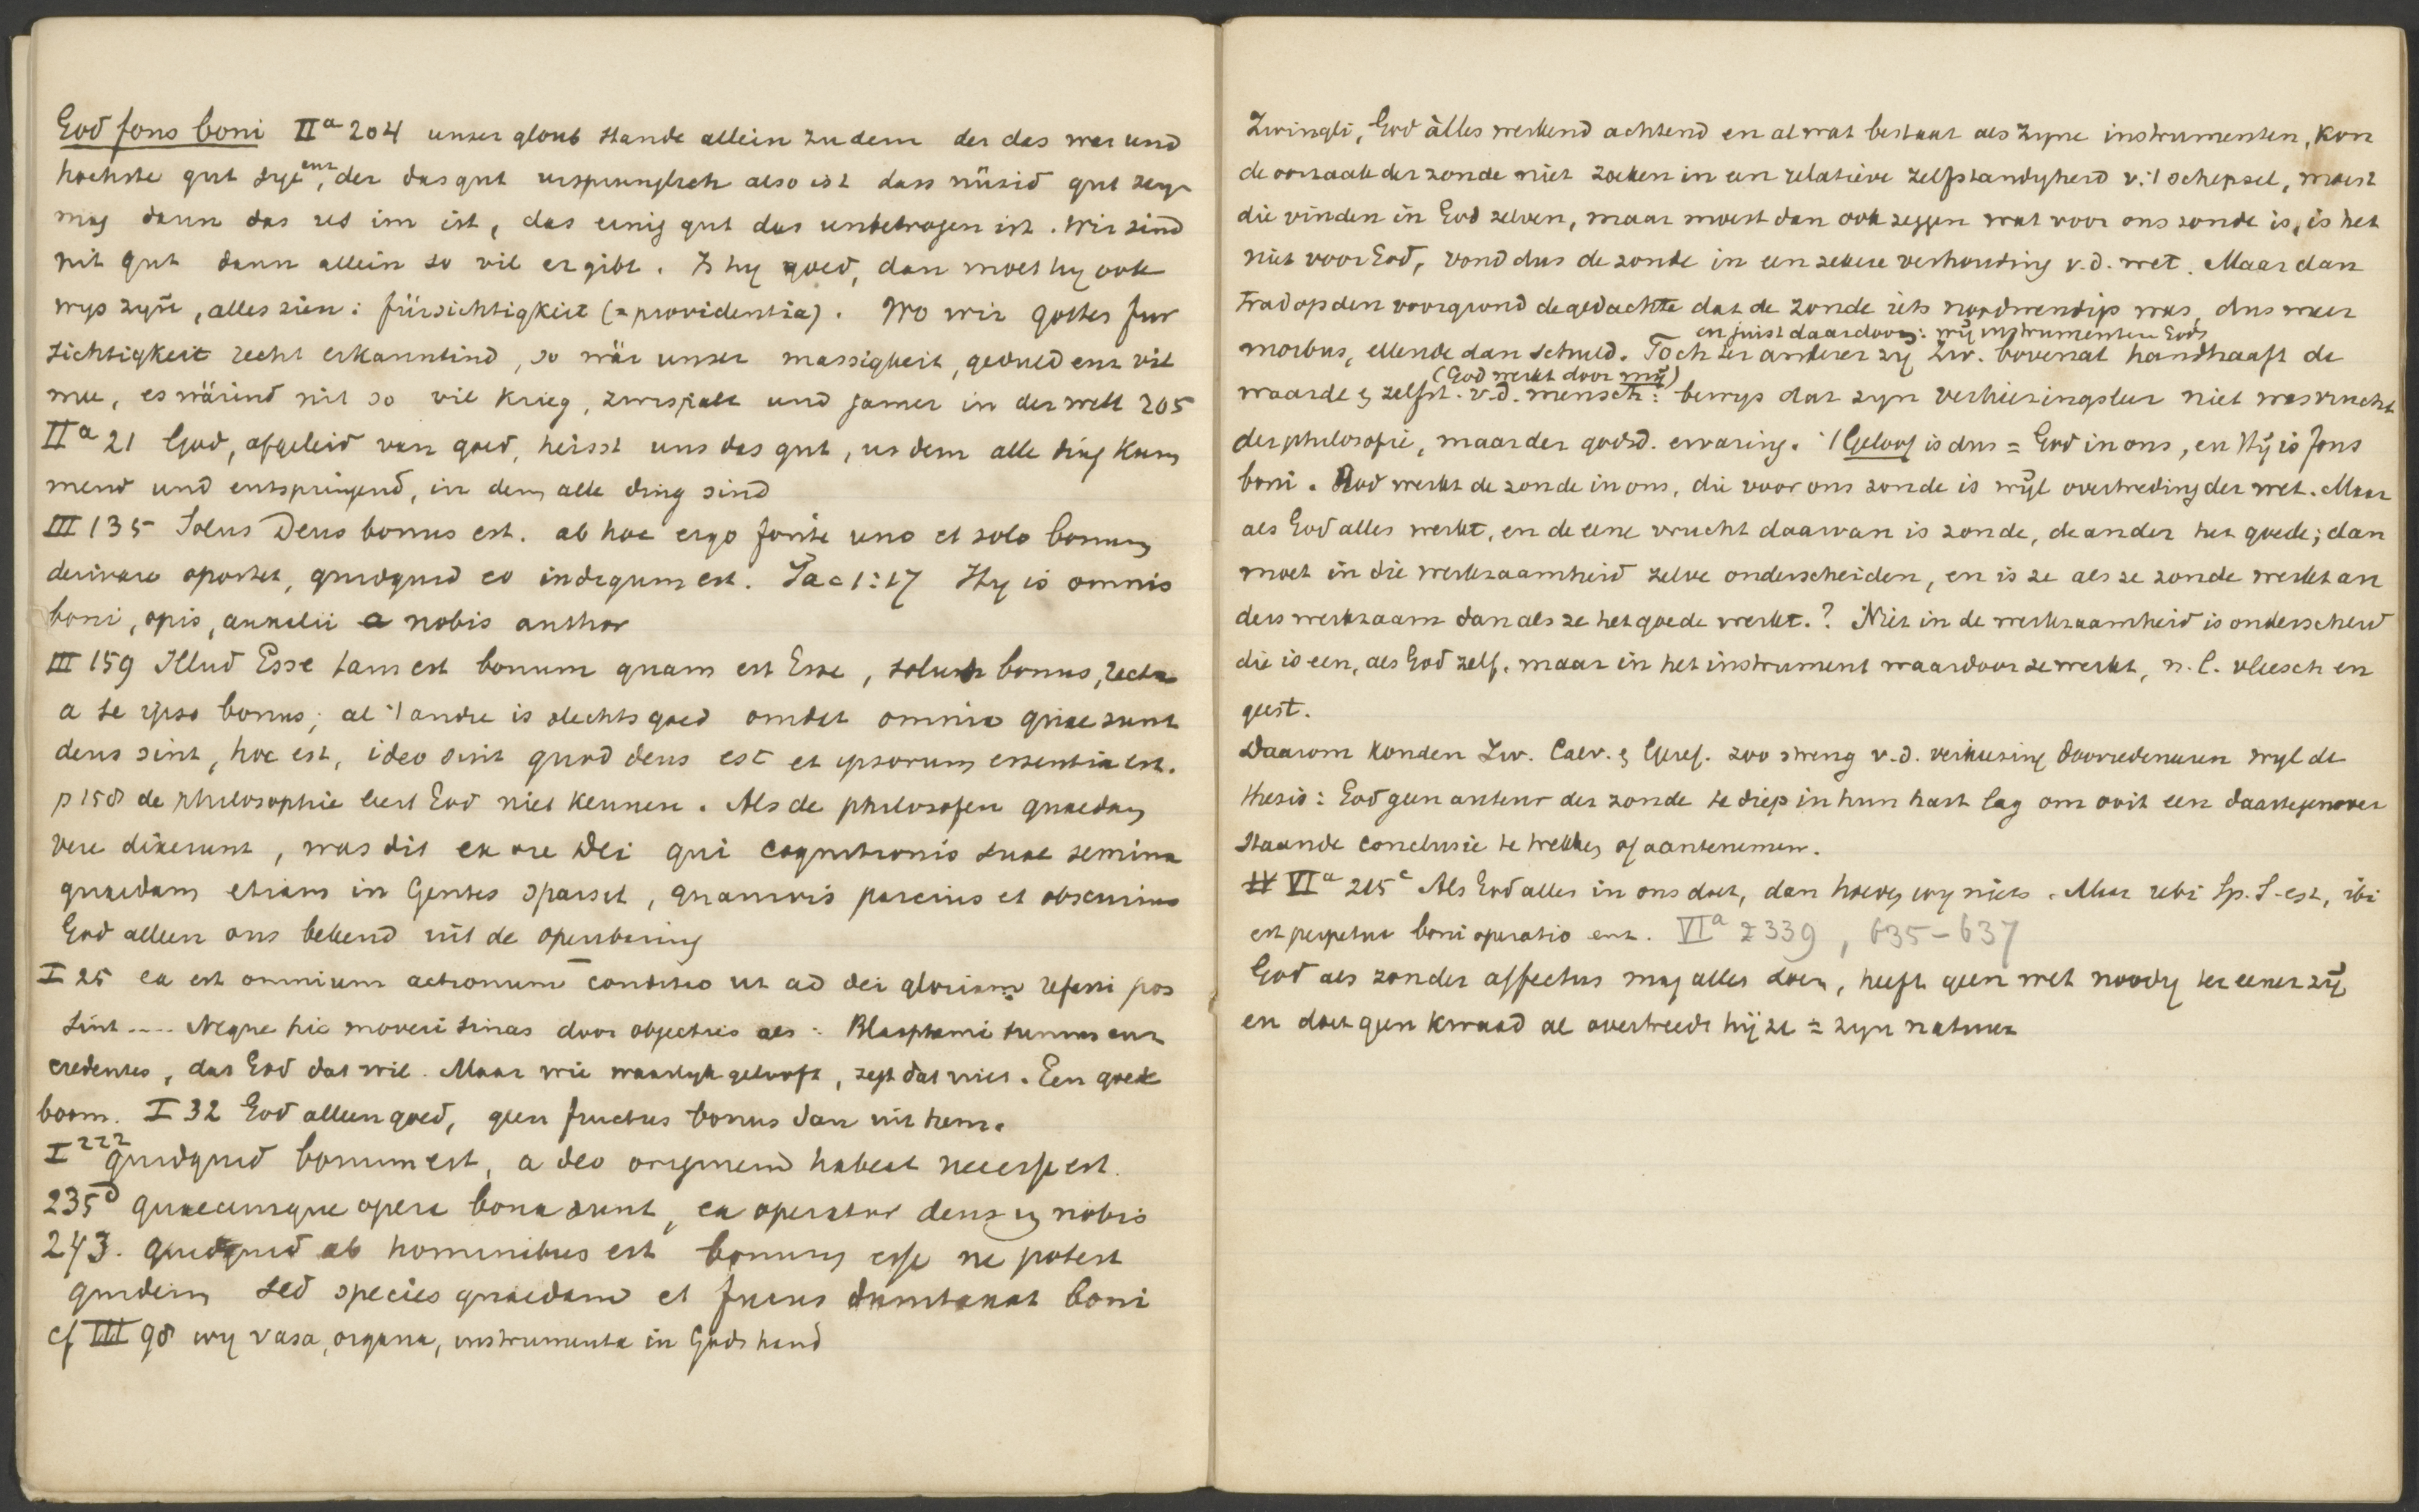 God fons boni IIa 204 unser gloub stande allein zu dem der das war und
hochste gut sye enz, der das gut ursprunglich also ist dass nüzid gut seyn
mag dann das us im ist, das einig gut das unbetrogen ist. Wir sind
nit gut dann allein so vil er gibt. Is hy goed, dan moet hy ook
wys zyn, alles zien: fürsichtigkeit (= providentia). Wo wir gottes für
sichtigkeit recht erkanntind, so wär unser massigheit, geduld enz vil
mee, es wärind nit so vil Krieg, zwispalt und jamer in der welt 205
IIa 21 God, afgeleid van goed, heisst uns das gut, us dem alle ding kum
mend und entspringend, in dem alle ding sind
III 135 Solus Deus bonus est. ab hoc ergo fonte uno et solo bonum
derivare oportet, quidquid eo indigum est. Jac 1:17 Hy is omnis
boni, opis, auxilii a nobis author
III 159 Illud Esse tam est bonum quam est Esse, solus bonus,
a se ipso bonus; al 't andre is slechts goed omdat omnia quae sunt
deus sint, hoc est, ideo sint quod deus est et ipsorum essentia est.
p 158 de philosophie leert God niet kennen. Als de philosofen quaedam
vere dixerunt, was dit ex ore Dei qui cognitionis suae semina
quaedam etiam in Gentes sparsit, quamvis parcius et obscurius
God alleen ons bekend uit de openbaring
I 25 ea est omnium actionum conditio ut ad dei gloriam referri pos
sint .... Neque hic moveri sinas door objecties als: Blasphemi sumus enz
credentes, das God dat wil. Maar wie waarlyk gelooft, zegt dat niet. Een goede
boom. I 32 God alleen goed, geen fructus bonus dan uit hem.
I 222 quidquid bonum est, a deo originem habeat necesse est.
235d quaecunque opera bona sunt, ea operatur deus in nobis
243. quidquid ab hominibus est bonum esse ne potest
quidem sed species quaedam et fucus dumtaxat boni
cf III 98 wy vasa, organa, instrumenta in Gods hand
Zwingli, God àlles werkend achtend en al wat bestaat als zyne instrumenten, kon
de oorzaak der zonde niet zoeken in een relatieve zelfstandigheid v. 't schepsel, moest
die vinden in God zelven, maar moest dan ook zeggen wat voor ons zonde is, is het
niet voor God, vond dus de zonde in een zekere verhouding v.d. wet. Maar dan
trad op den voorgrond de gedachte dat de zonde iets noodwendigs was, dus meer
en juist daardoor: wij instrumenten Gods
morbus, ellende dan schuld. Toch ter anderer zy Zw. bovenal handhaaft de
(God werkt door mij)
waarde & zelfst. v.d. mensch: bewys dat zyn verkiezingsleer niet was vrucht
der philosofie, maar der godsd. ervaring. 't Geloof is dus = God in ons, en Hij is fons
boni. God werkt de zonde in ons, die voor ons zonde is wijl overtreding der wet. Maar
als God alles werkt, en de eene vrucht daarvan is zonde, de ander het goede; dan
moet in die werkzaamheid zelve onderscheiden, en is ze als ze zonde werkt an
ders werkzaam dan als ze het goede werkt.? Niet in de werkzaamheid is onderscheid
die is een, als God zelf, maar in het instrument waardoor ze werkt, n.l. vleesch en
geest.
Daarom konden Zw. Calv. & Geref. zoo streng v.d. verkiezing doorredeneeren wyl de
thesis: God geen auteur der zonde te diep in hun hart lag om ooit een daartegenover
staande conclusie te trekken of aantenemen.
VIa 215c Als God alles in ons doet, dan hoeven wy niets. Maar ubi Sp. S. est, ibi
est perpetua boni operatio enz. VIa 2339, 635-637
God als zonder affectus mag alles doen, heeft geen wet noodig ter eener zij
en doet geen kwaad al overtreedt hij ze = zyn natuur